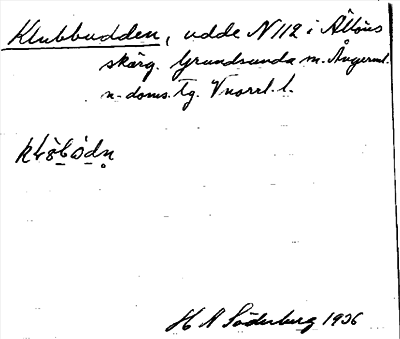 Klubbudden, udde N 112 i Ållöns
skärg. Grundsunda sn. Ångerml.
n. doms. tg. Vnorrl. l.
H N Söderberg 1936